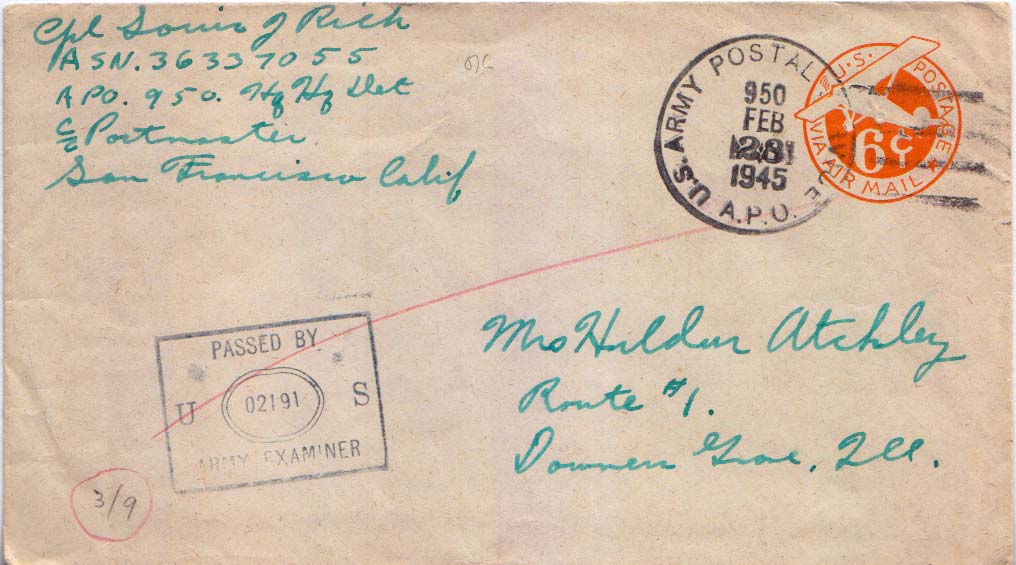 Cpl Louis J Rich
ASN. 36337055
APO. 950. Hq Hq Det
c/o Postmaster
San Francisco Calif
U.S. ARMY POSTAL
950
FEB
28
1945
A.P.O.
U.S. POSTAGE
6¢
VIA AIR MAIL
PASSED BY
U 02191 S
ARMY EXAMINER
Mrs Hildur Atchley
Route #1.
Downers Grove, Ill.
3/9